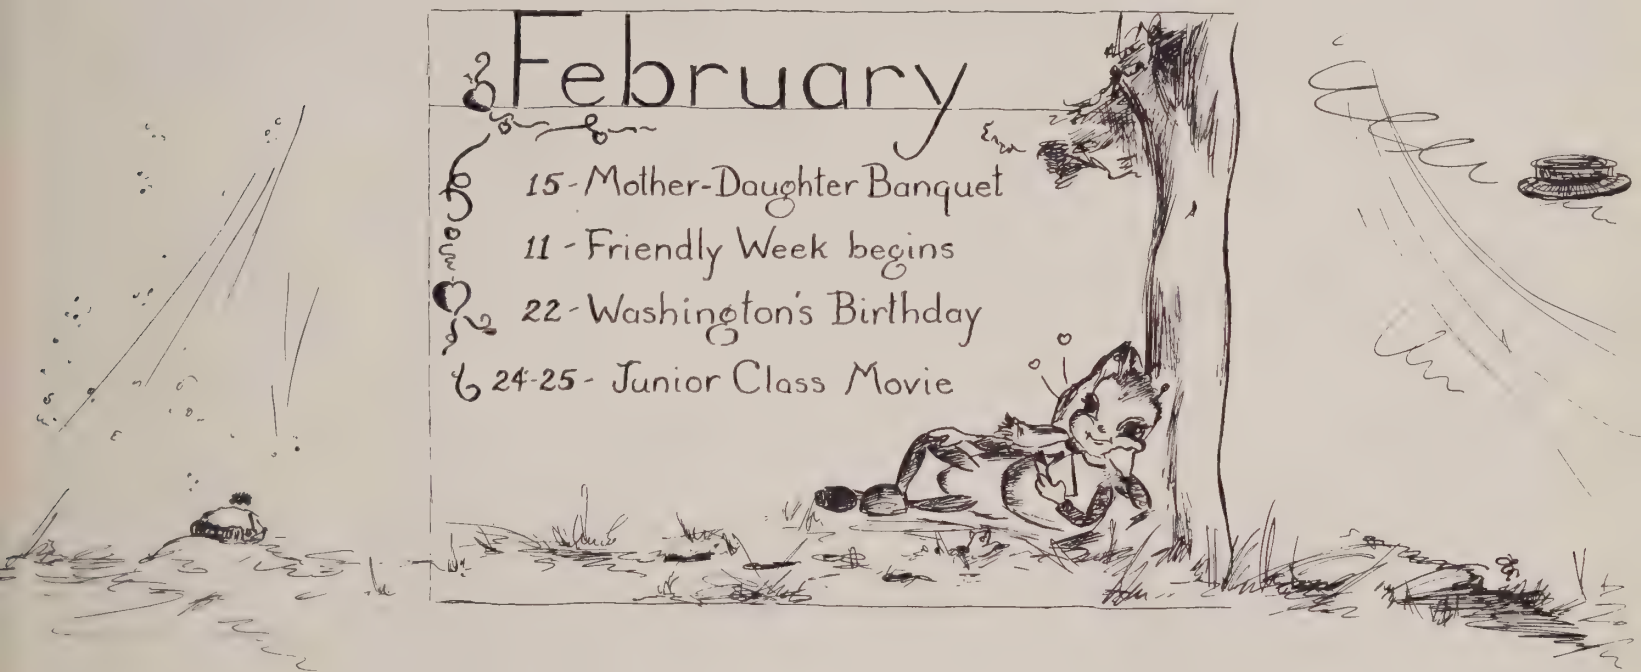 February
15-Mother-Daughter Banquet
11-Friendly Week begins
22-Washington's Birthday
24-25-Junior Class Movie